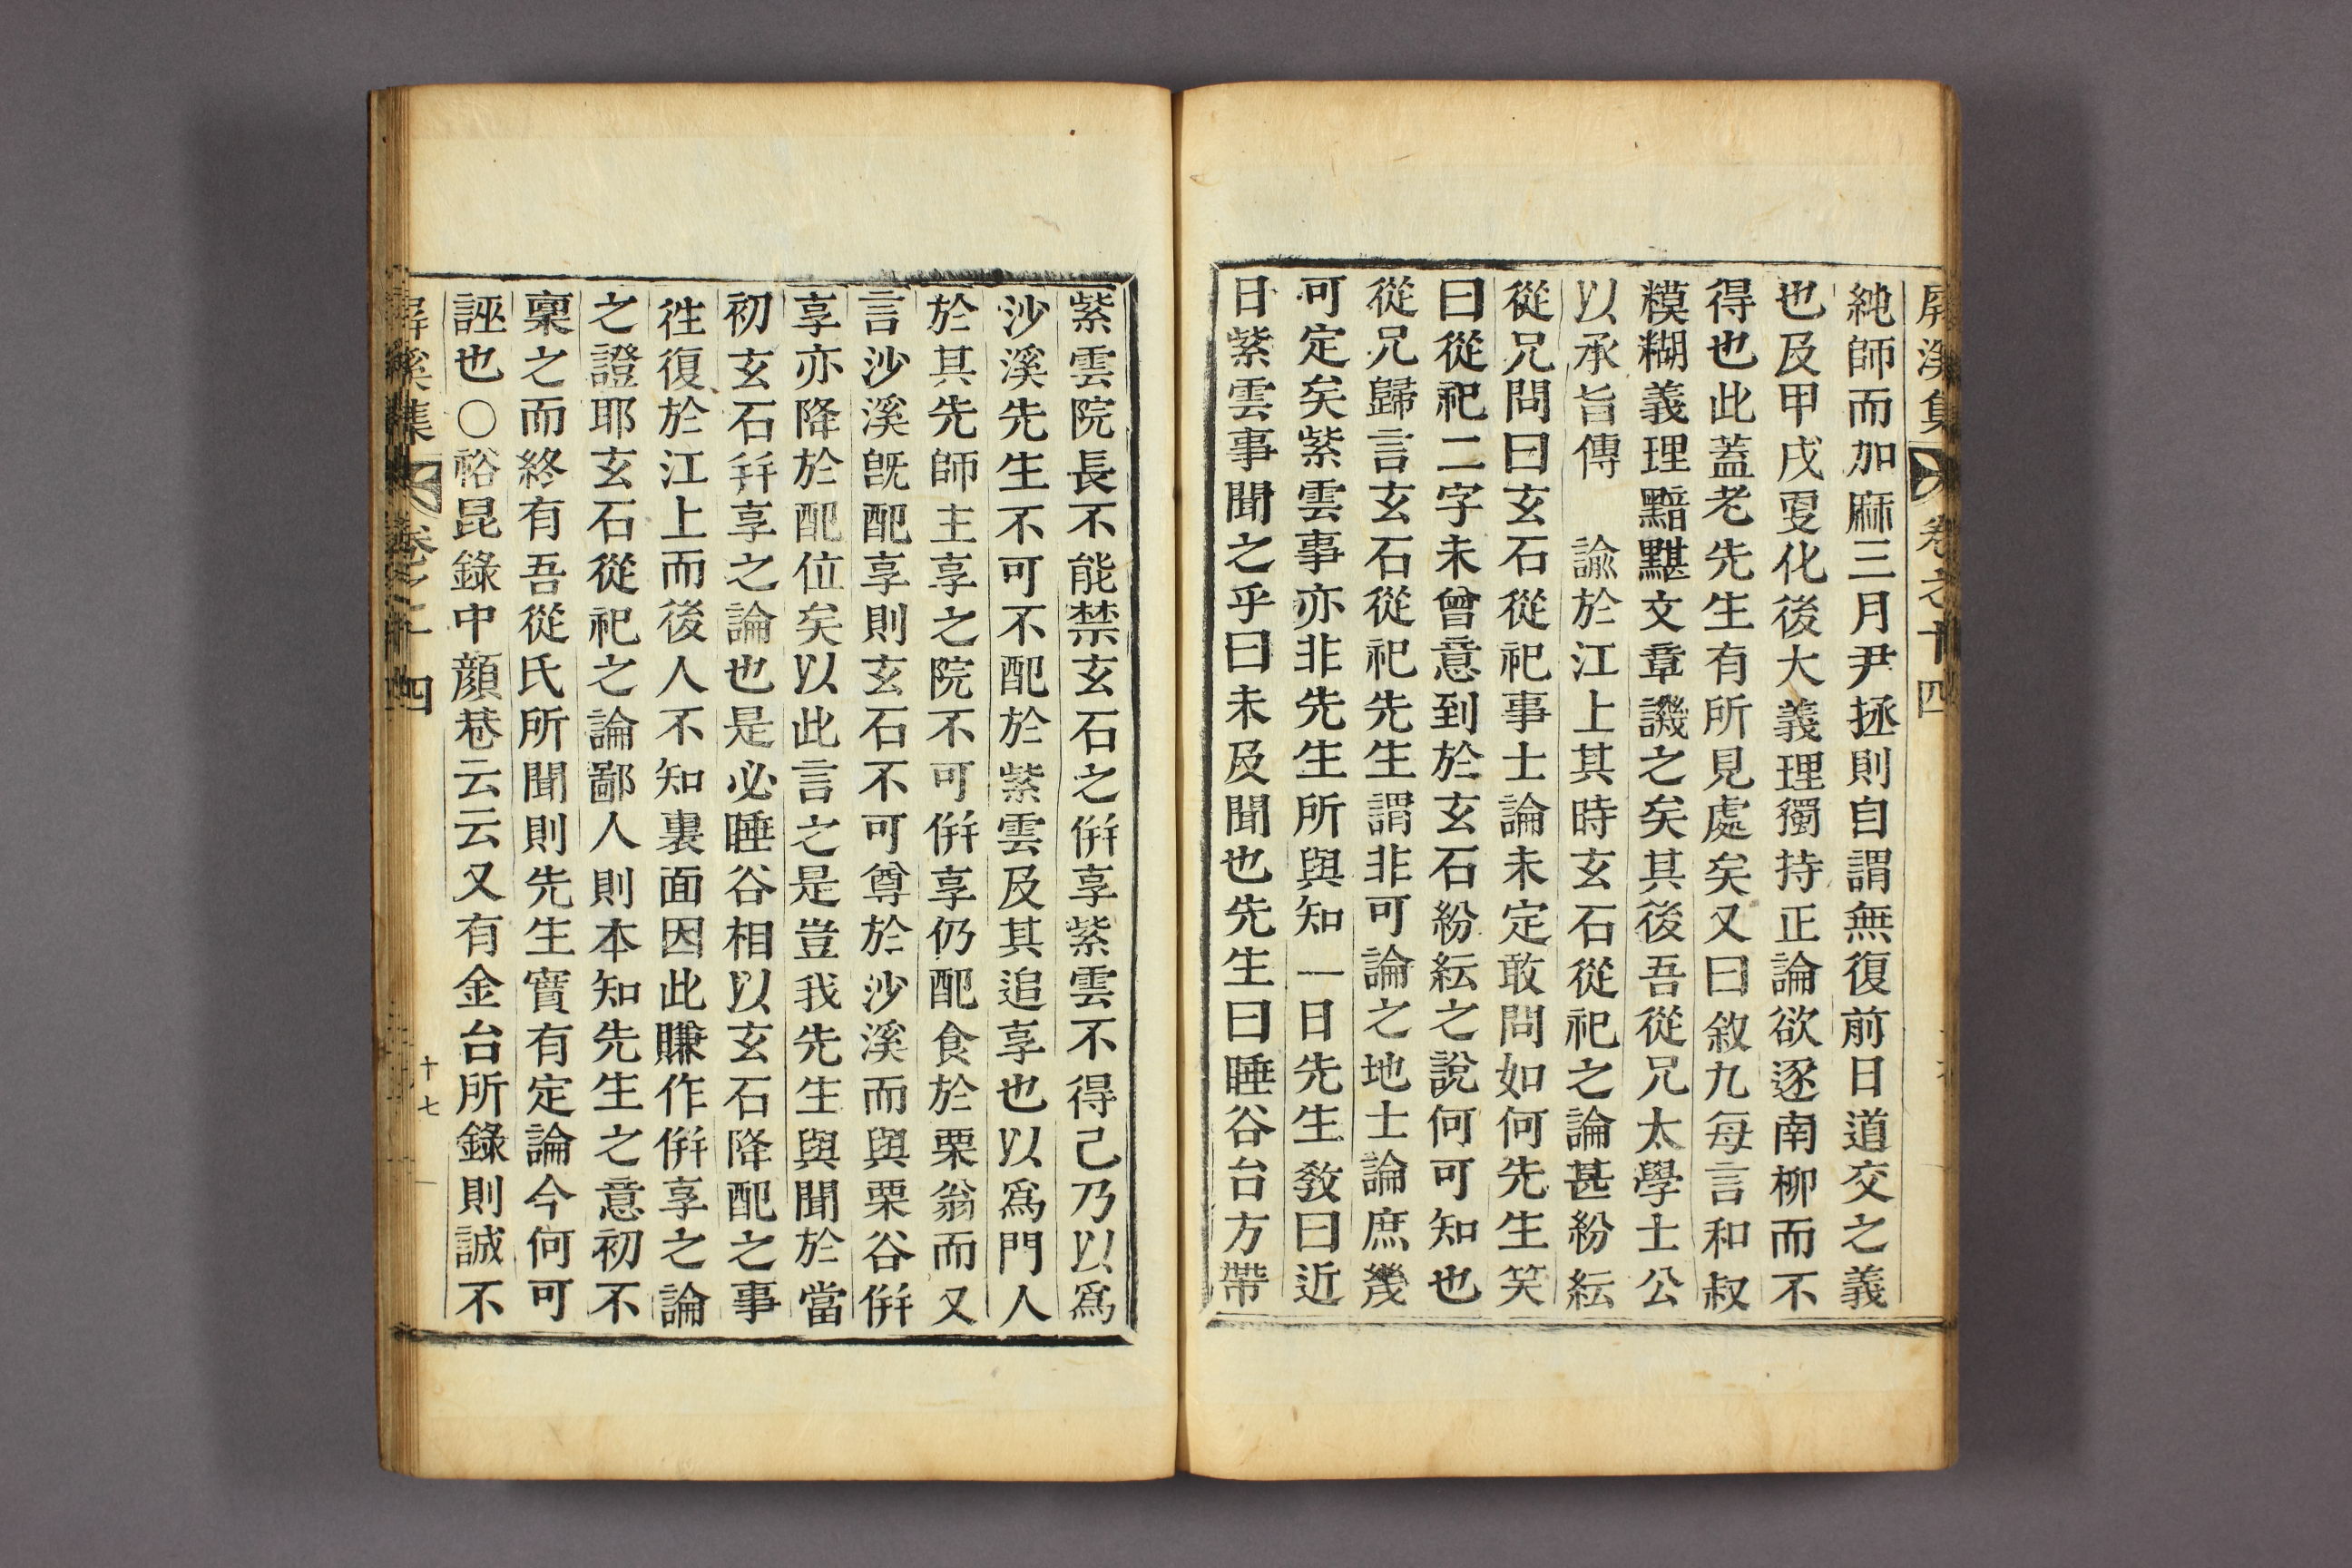 屛溪集 卷之十四
純師而加麻三月尹拯則自謂無復前日道交之義
也及甲戌更化後大義理獨持正論欲逐南柳而不
得也此蓋老先生有所見處矣又曰敘九每言和叔
糢糊義理黯黮文章譏之矣其後吾從兄太學士公
以承旨傳 諭於江上其時玄石從祀之論甚紛紜
從兄問曰玄石從祀事士論未定敢問如何先生笑
曰從祀二字未曾意到於玄石紛紜之說何可知也
從兄歸言玄石從祀先生謂非可論之地士論庶幾
可定矣紫雲事亦非先生所與知一日先生敎曰近
日紫雲事聞之乎曰未及聞也先生曰睡谷台方帶
紫雲院長不能禁玄石之倂享紫雲不得已乃以爲
沙溪先生不可不配於紫雲及其追享也以爲門人
於其先師主享之院不可倂享仍配食於栗翁而又
言沙溪旣配享則玄石不可尊於沙溪而與栗谷倂
享亦降於配位矣以此言之是豈我先生與聞於當
初玄石幷享之論也是必睡谷相以玄石降配之事
徃復於江上而後人不知裏面因此賺作倂享之論
之證耶玄石從祀之論鄙人則本知先生之意初不
稟之而終有吾從氏所聞則先生實有定論今何可
誣也○裕昆錄中顔巷云云又有金台所錄則誠不
屛溪集 卷之十四 十七